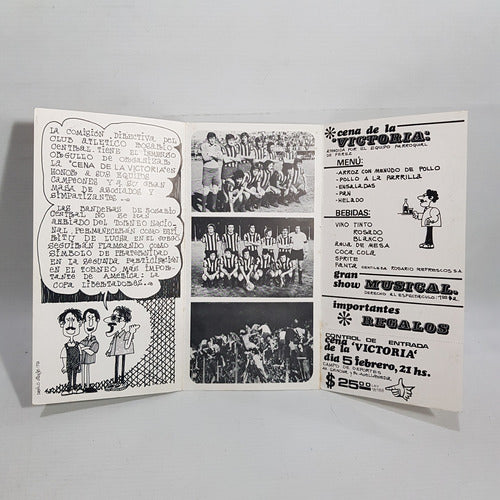 LA COMISIÓN DIRECTIVA DEL
CLUB ATLETICO ROSARIO
CENTRAL TIENE EL INMENSO
ORGULLO DE ORGANIZAR
LA "CENA DE LA VICTORIA" EN
HONOR A SUS EQUIPOS
CAMPEONES Y A SU GRAN
MASA DE ASOCIADOS Y
SIMPATIZANTES...
LAS BANDERAS DE ROSARIO
CENTRAL NO SE HAN
ARRIADO DEL TORNEO NACIO
NAL. PERMANECERAN COMO ESPI
RITU DE LUCHA EN EL
SEGUIRAN FLAMEANDO COMO
SÍMBOLO DE FRATERNIDAD
EN LA SEGUNDA PARTICIPACIÓN
EN EL TORNEO MÁS IMPOR-
TANTE DE AMERICA: LA
COPA LIBERTADORES...
*cena de la
VICTORIA:
POR EL EQUIPO PARROQUIAL
DE PEREZ
MENÚ:
-ARROZ CON MENUDO DE POLLO
-POLLO A LA PARRILLA
-ENSALADAS
-PAN
-HELADO
BEBIDAS:
VINO TINTO
ROSADO
BLANCO
AGUA DE MESA
COCA COLA
SPRITE
FANTA ROSARIO REFRESCOS S.A.
gran
show MUSICAL.
DERECHO EL ESPECTÁCULO:
importantes
* REGALOS
CONTROL DE ENTRADA
cena
de la 'VICTORIA'
día 5 febrero, 21 hs.
CAMPO DE DEPORTES
$ 2500